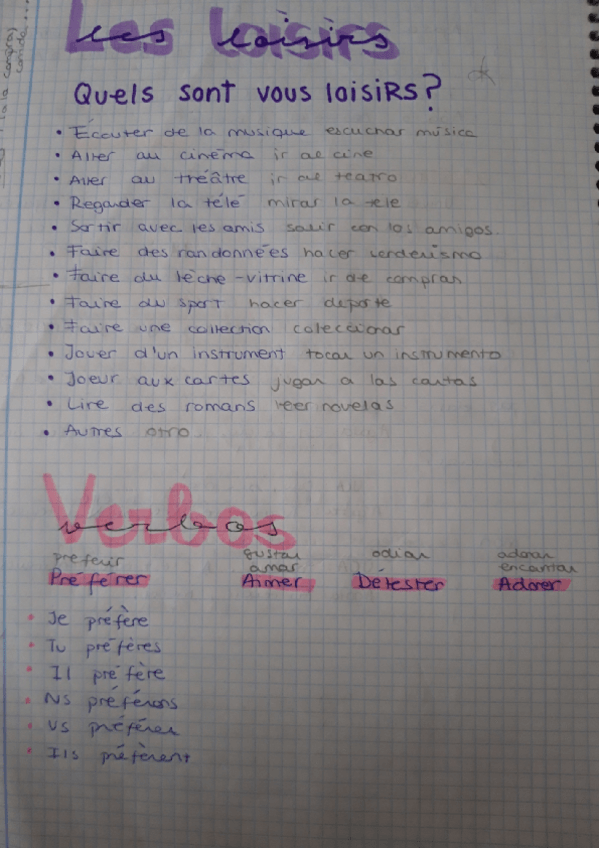 Les loisirs
Quels sont vous loisirs?
• Écouter de la musique escuchar música
• Aller au cinéma ir al cine
• Aller au tréâtre ir al teatro
• Regarder la télé mirar la tele
• Sortir avec les amis salir con los amigos.
• Faire des randonnées hacer senderismo
• Faire du lèche-vitrine ir de compras
• Faire du sport hacer deporte
• Faire une collection coleccionar
• Jouer d'un instrument tocar un instrumento
• Joeur aux cartes jugar a las cartas
• Lire des romans leer novelas
• Autres otro
Verbos
verbos
preferir gustar odiar adorar
amar encantar
Préférer Aimer Détester Adorer
• Je préfère
• Tu préfères
• Il préfère
• Ns préférons
• Vs préférez
• Ils préfèrent
a la compras
comida...